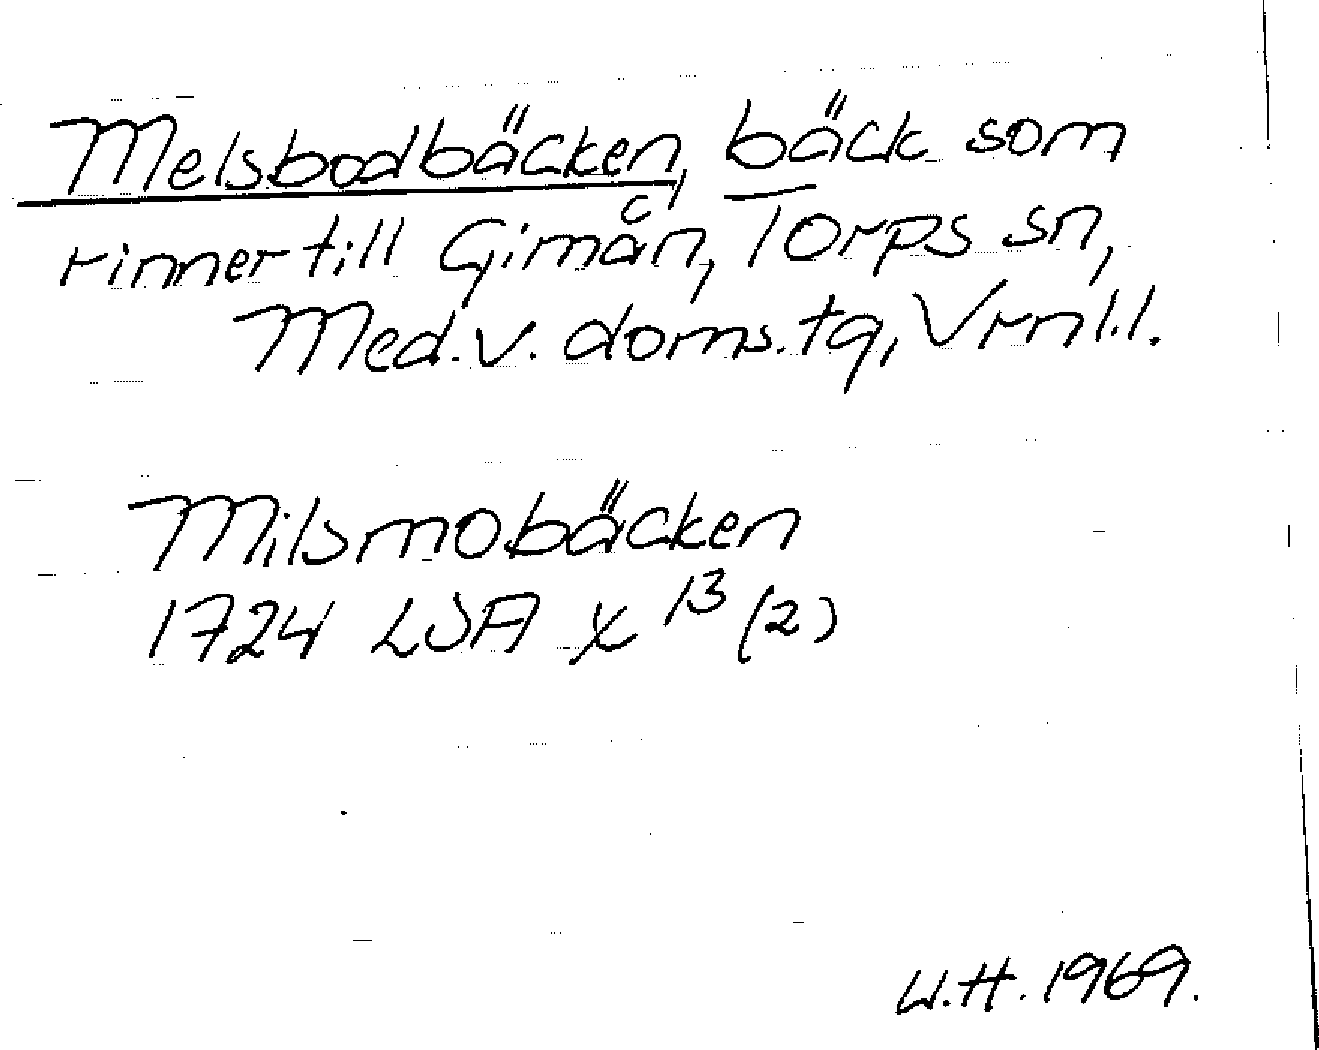 Melsbodbäcken, bäck som
rinner till Gimån, Torps sn,
Med. v. doms. tg, Vrnl.l.
Milsmobäcken
1724 LSA X 13 (2)
W.H. 1969.